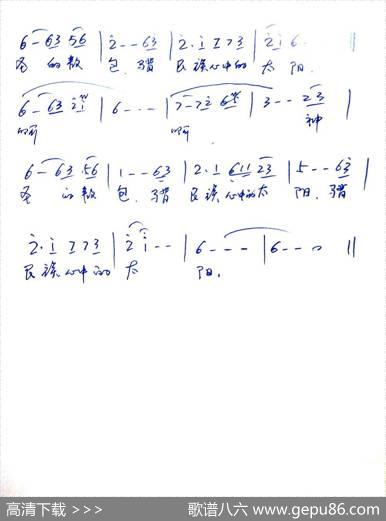 6 - 63 56 | 2 - - 63 | 2 · 1 7 7 3 | 2 1 6 · ||
圣 的敖 包 猎 民族心中的 太 阳.
6 - 63 21 | 6 - - - | 7 - 72 65 | 3 - - 23 ||
啊 啊 神
6 - 63 56 | 1 - - 63 | 2 · 1 611 23 | 5 - - 63 |
圣 的敖 包. 猎 民族心中的太 阳. 猎
2 · 1 7 7 3 | 2 1 - - | 6 - - - | 6 - - 0 ||
民族心中的 太 阳.
高清下载 >>> 歌谱八六 www.gepu86.com